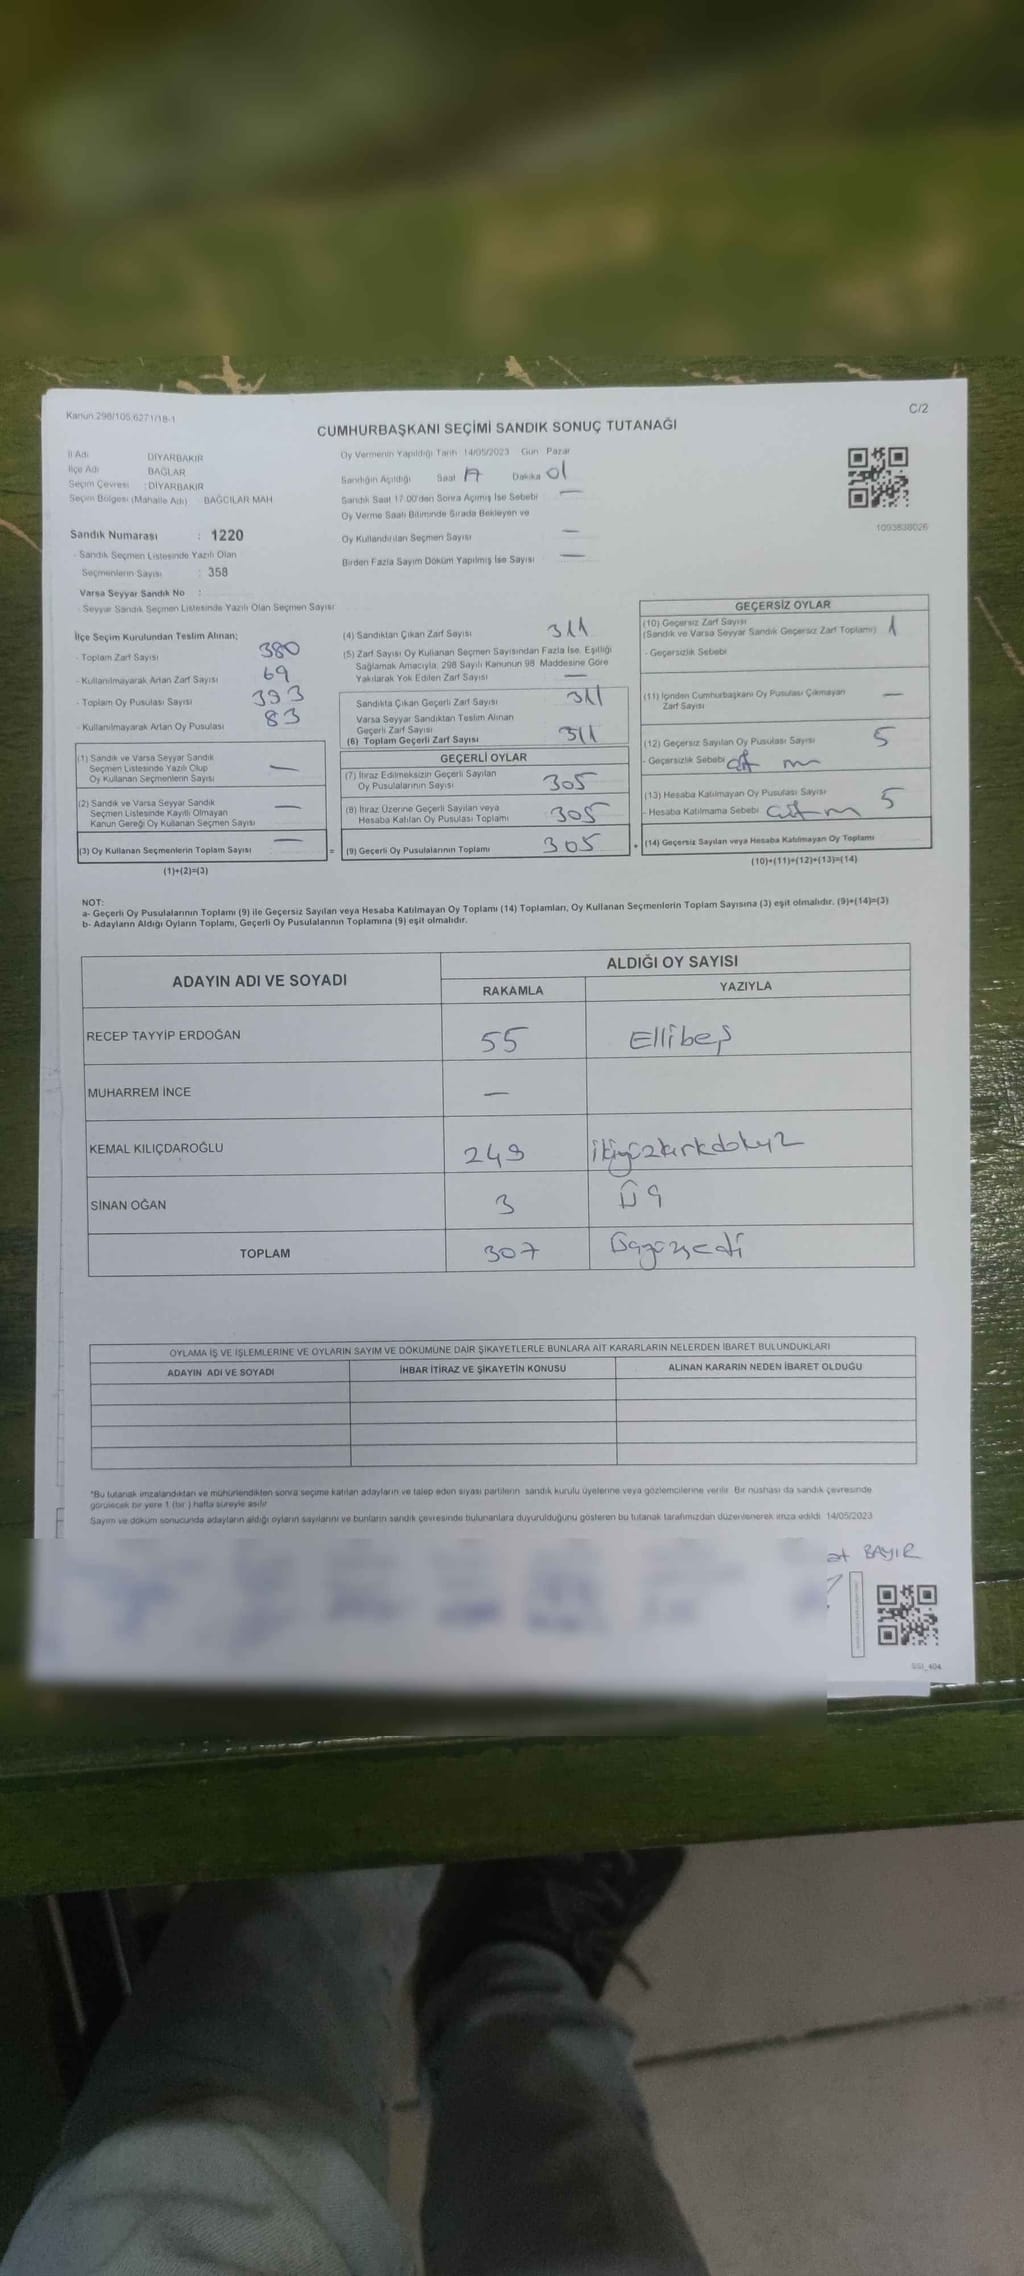 Kanun 298/105,6271/18-1
C/2
CUMHURBAŞKANI SEÇİMİ SANDIK SONUÇ TUTANAĞI
İl Adı DİYARBAKIR
İlçe Adı BAĞLAR
Seçim Çevresi : DİYARBAKIR
Seçim Bölgesi (Mahalle Adı) BAĞCILAR MAH
Sandık Numarası : 1220
- Sandık Seçmen Listesinde Yazılı Olan
Seçmenlerin Sayısı : 358
Varsa Seyyar Sandık No :
- Seyyar Sandık Seçmen Listesinde Yazılı Olan Seçmen Sayısı
Oy Vermenin Yapıldığı Tarih 14/05/2023 Gün Pazar
Sandığın Açıldığı Saat 17 Dakika 01
Sandık Saat 17:00'den Sonra Açımış İse Sebebi —
Oy Verme Saati Bitiminde Sırada Bekleyen ve
Oy Kullandırılan Seçmen Sayısı —
Birden Fazla Sayım Döküm Yapılmış İse Sayısı —
1093838026
İlçe Seçim Kurulundan Teslim Alınan;
- Toplam Zarf Sayısı 380
- Kullanılmayarak Artan Zarf Sayısı 69
- Toplam Oy Pusulası Sayısı 393
- Kullanılmayarak Artan Oy Pusulası 83
(1) Sandık ve Varsa Seyyar Sandık
Seçmen Listesinde Yazılı Olup
Oy Kullanan Seçmenlerin Sayısı —
(2) Sandık ve Varsa Seyyar Sandık
Seçmen Listesinde Kayıtlı Olmayan
Kanun Gereği Oy Kullanan Seçmen Sayısı —
(3) Oy Kullanan Seçmenlerin Toplam Sayısı —
=
(1)+(2)=(3)
(4) Sandıktan Çıkan Zarf Sayısı 311
(5) Zarf Sayısı Oy Kullanan Seçmen Sayısından Fazla İse, Eşitliği
Sağlamak Amacıyla, 298 Sayılı Kanunun 98. Maddesine Göre
Yakılarak Yok Edilen Zarf Sayısı —
Sandıkta Çıkan Geçerli Zarf Sayısı 311
Varsa Seyyar Sandıktan Teslim Alınan
Geçerli Zarf Sayısı
(6) Toplam Geçerli Zarf Sayısı 311
GEÇERLİ OYLAR
(7) İtiraz Edilmeksizin Geçerli Sayılan
Oy Pusulalarının Sayısı 305
(8) İtiraz Üzerine Geçerli Sayılan veya
Hesaba Katılan Oy Pusulası Toplamı 305
(9) Geçerli Oy Pusulalarının Toplamı 305
+
GEÇERSİZ OYLAR
(10) Geçersiz Zarf Sayısı
(Sandık ve Varsa Seyyar Sandık Geçersiz Zarf Toplamı) 1
- Geçersizlik Sebebi
(11) İçinden Cumhurbaşkanı Oy Pusulası Çıkmayan
Zarf Sayısı —
(12) Geçersiz Sayılan Oy Pusulası Sayısı 5
- Geçersizlik Sebebi
(13) Hesaba Katılmayan Oy Pusulası Sayısı 5
- Hesaba Katılmama Sebebi
(14) Geçersiz Sayılan veya Hesaba Katılmayan Oy Toplamı
(10)+(11)+(12)+(13)=(14)
NOT:
a- Geçerli Oy Pusulalarının Toplamı (9) ile Geçersiz Sayılan veya Hesaba Katılmayan Oy Toplamı (14) Toplamları, Oy Kullanan Seçmenlerin Toplam Sayısına (3) eşit olmalıdır. (9)+(14)=(3)
b- Adayların Aldığı Oyların Toplamı, Geçerli Oy Pusulalarının Toplamına (9) eşit olmalıdır.
ADAYIN ADI VE SOYADI ALDIĞI OY SAYISI
RAKAMLA YAZIYLA
RECEP TAYYİP ERDOĞAN 55 Ellibeş
MUHARREM İNCE —
KEMAL KILIÇDAROĞLU 249 ikiyüzkırkdokuz
SİNAN OĞAN 3 Üç
TOPLAM 307 Üçyüzyedi
OYLAMA İŞ VE İŞLEMLERİNE VE OYLARIN SAYIM VE DÖKÜMÜNE DAİR ŞİKAYETLERLE BUNLARA AİT KARARLARIN NELERDEN İBARET BULUNDUKLARI
ADAYIN ADI VE SOYADI İHBAR İTİRAZ VE ŞİKAYETİN KONUSU ALINAN KARARIN NEDEN İBARET OLDUĞU
*Bu tutanak imzalandıktan ve mühürlendikten sonra seçime katılan adayların ve talep eden siyasi partilerin sandık kurulu üyelerine veya gözlemcilerine verilir. Bir nüshası da sandık çevresinde
görülecek bir yere 1 (bir ) hafta süreyle asılır
Sayım ve döküm sonucunda adayların aldığı oyların sayılarını ve bunların sandık çevresinde bulunanlara duyurulduğunu gösteren bu tutanak tarafımızdan düzenlenerek imza edildi. 14/05/2023
at BAYIR
SSI_404